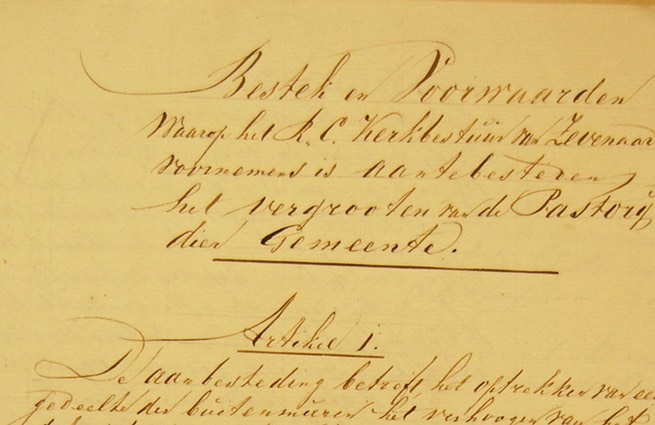 Bestek en Voorwaarden
Waarop het R. C. Kerkbestuur van Zevenaar
voornemens is aantebesteden
het vergrooten van de Pastorij
dier Gemeente.
Artikel 1.
De aanbesteding betreft, het optrekken van een
gedeelte der buitenmuren het verhoogen van het